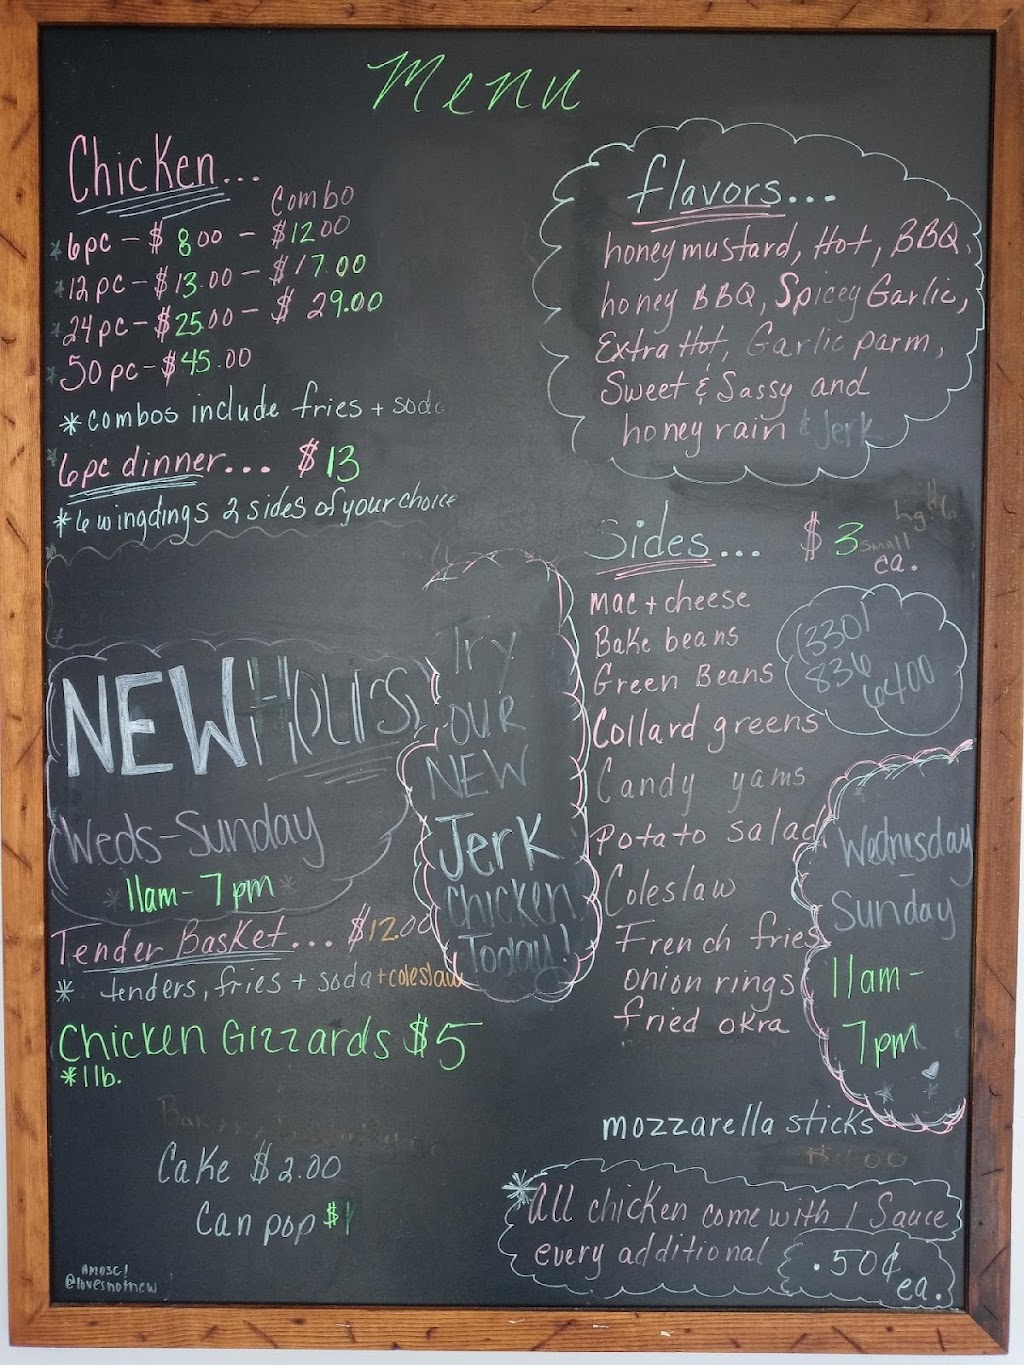 Menu
Chicken...
Combo
*6pc - $8.00 - $12.00
*12pc - $13.00 - $17.00
*24pc - $25.00 - $29.00
*50pc - $45.00
*combos include fries + soda
*6pc dinner... $13
*6 wingdings 2 sides of your choice
NEW Hours
Weds-Sunday
*11am-7pm*
Tender Basket... $12.00
* tenders, fries + soda + coleslaw
Chicken Gizzards $5
*1lb.
Cake $2.00
Can pop $1
@lovesnotnew
Try
OUR
NEW
Jerk
Chicken
Today!
flavors...
honey mustard, Hot, BBQ,
honey BBQ, Spicey Garlic,
Extra Hot, Garlic parm,
Sweet & Sassy and
honey rain & Jerk
Sides... $3 small
lg $6
ea.
Mac + cheese
Bake beans
Green Beans
Collard greens
Candy yams
Potato salad
Coleslaw
French fries
onion rings
fried okra
(330)
836
6400
Wednesday
-
Sunday
11am-
7pm
mozzarella sticks
*All chicken come with 1 Sauce
every additional .50¢
ea.